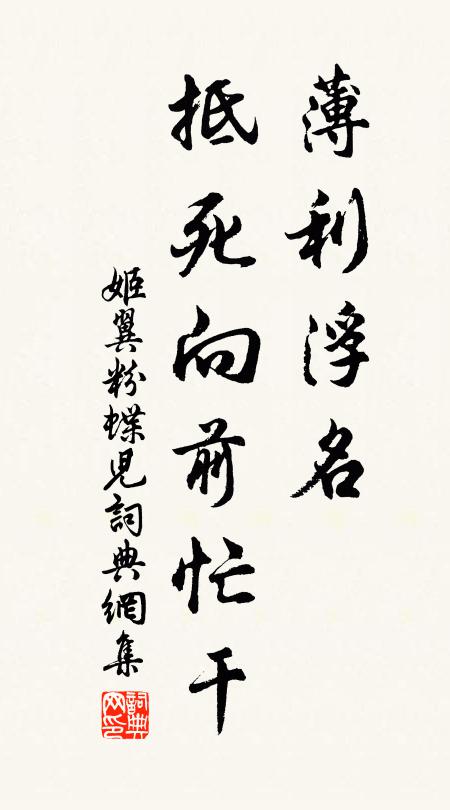 薄利浮名
抵死向前忙干
姬翼粉蝶兒詞典網集
詞典网印